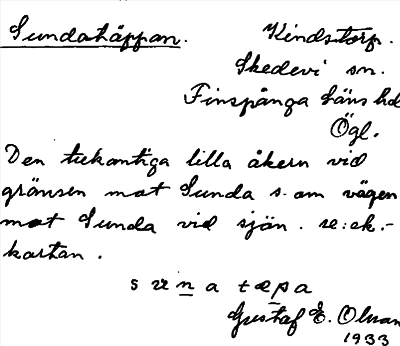 Sundatäppan. Kindstorp.
Skedevi sn.
Finspånga läns hd
Ögl.
Den trekantiga lilla åkern vid
gränsen mot Sunda s. om vägen
mot Sunda vid sjön. se: ek.-
kartan.
s u n a t æ p a
Gustaf E. Olsson
1933